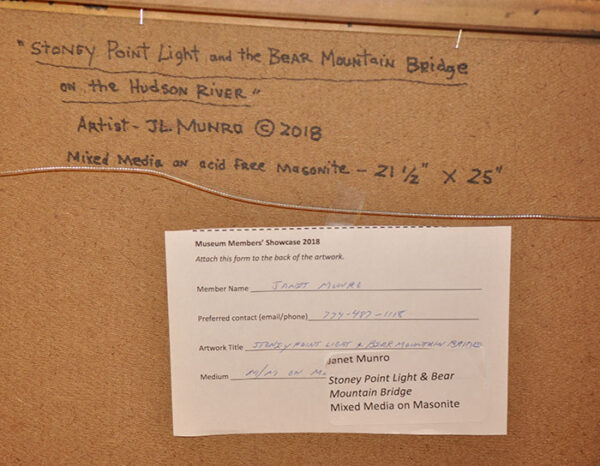 "Stoney Point Light and the Bear Mountain Bridge
on the Hudson River"
Artist - JL Munro © 2018
Mixed Media on acid free Masonite - 21 1/2" X 25"
Museum Members' Showcase 2018
Attach this form to the back of the artwork.
Member Name JANET MUNRO
Preferred contact (email/phone) 774-487-1118
Artwork Title STONEY POINT LIGHT & BEAR MOUNTAIN BRIDGE
Medium M/M ON
Janet Munro
Stoney Point Light & Bear
Mountain Bridge
Mixed Media on Masonite